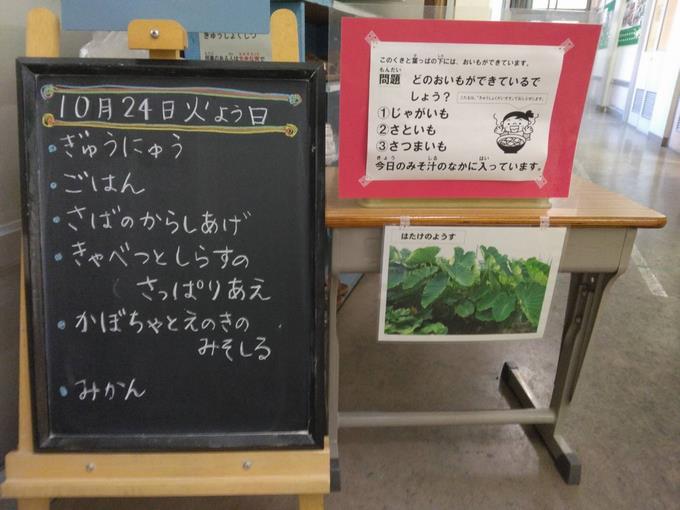 10月24日火よう日
・ぎゅうにゅう
・ごはん
・さばのからしあげ
・きゃべつとしらすの
さっぱりあえ
・かぼちゃとえのきの
みそしる
・みかん
きゅうしょくしつ
このくきと葉っぱの下には、おいもができています。
もんだい
問題 どのおいもができているで
しょう？
①じゃがいも
②さといも
③さつまいも
きょう しる はい
今日のみそ汁のなかに入っています。
はたけのようす